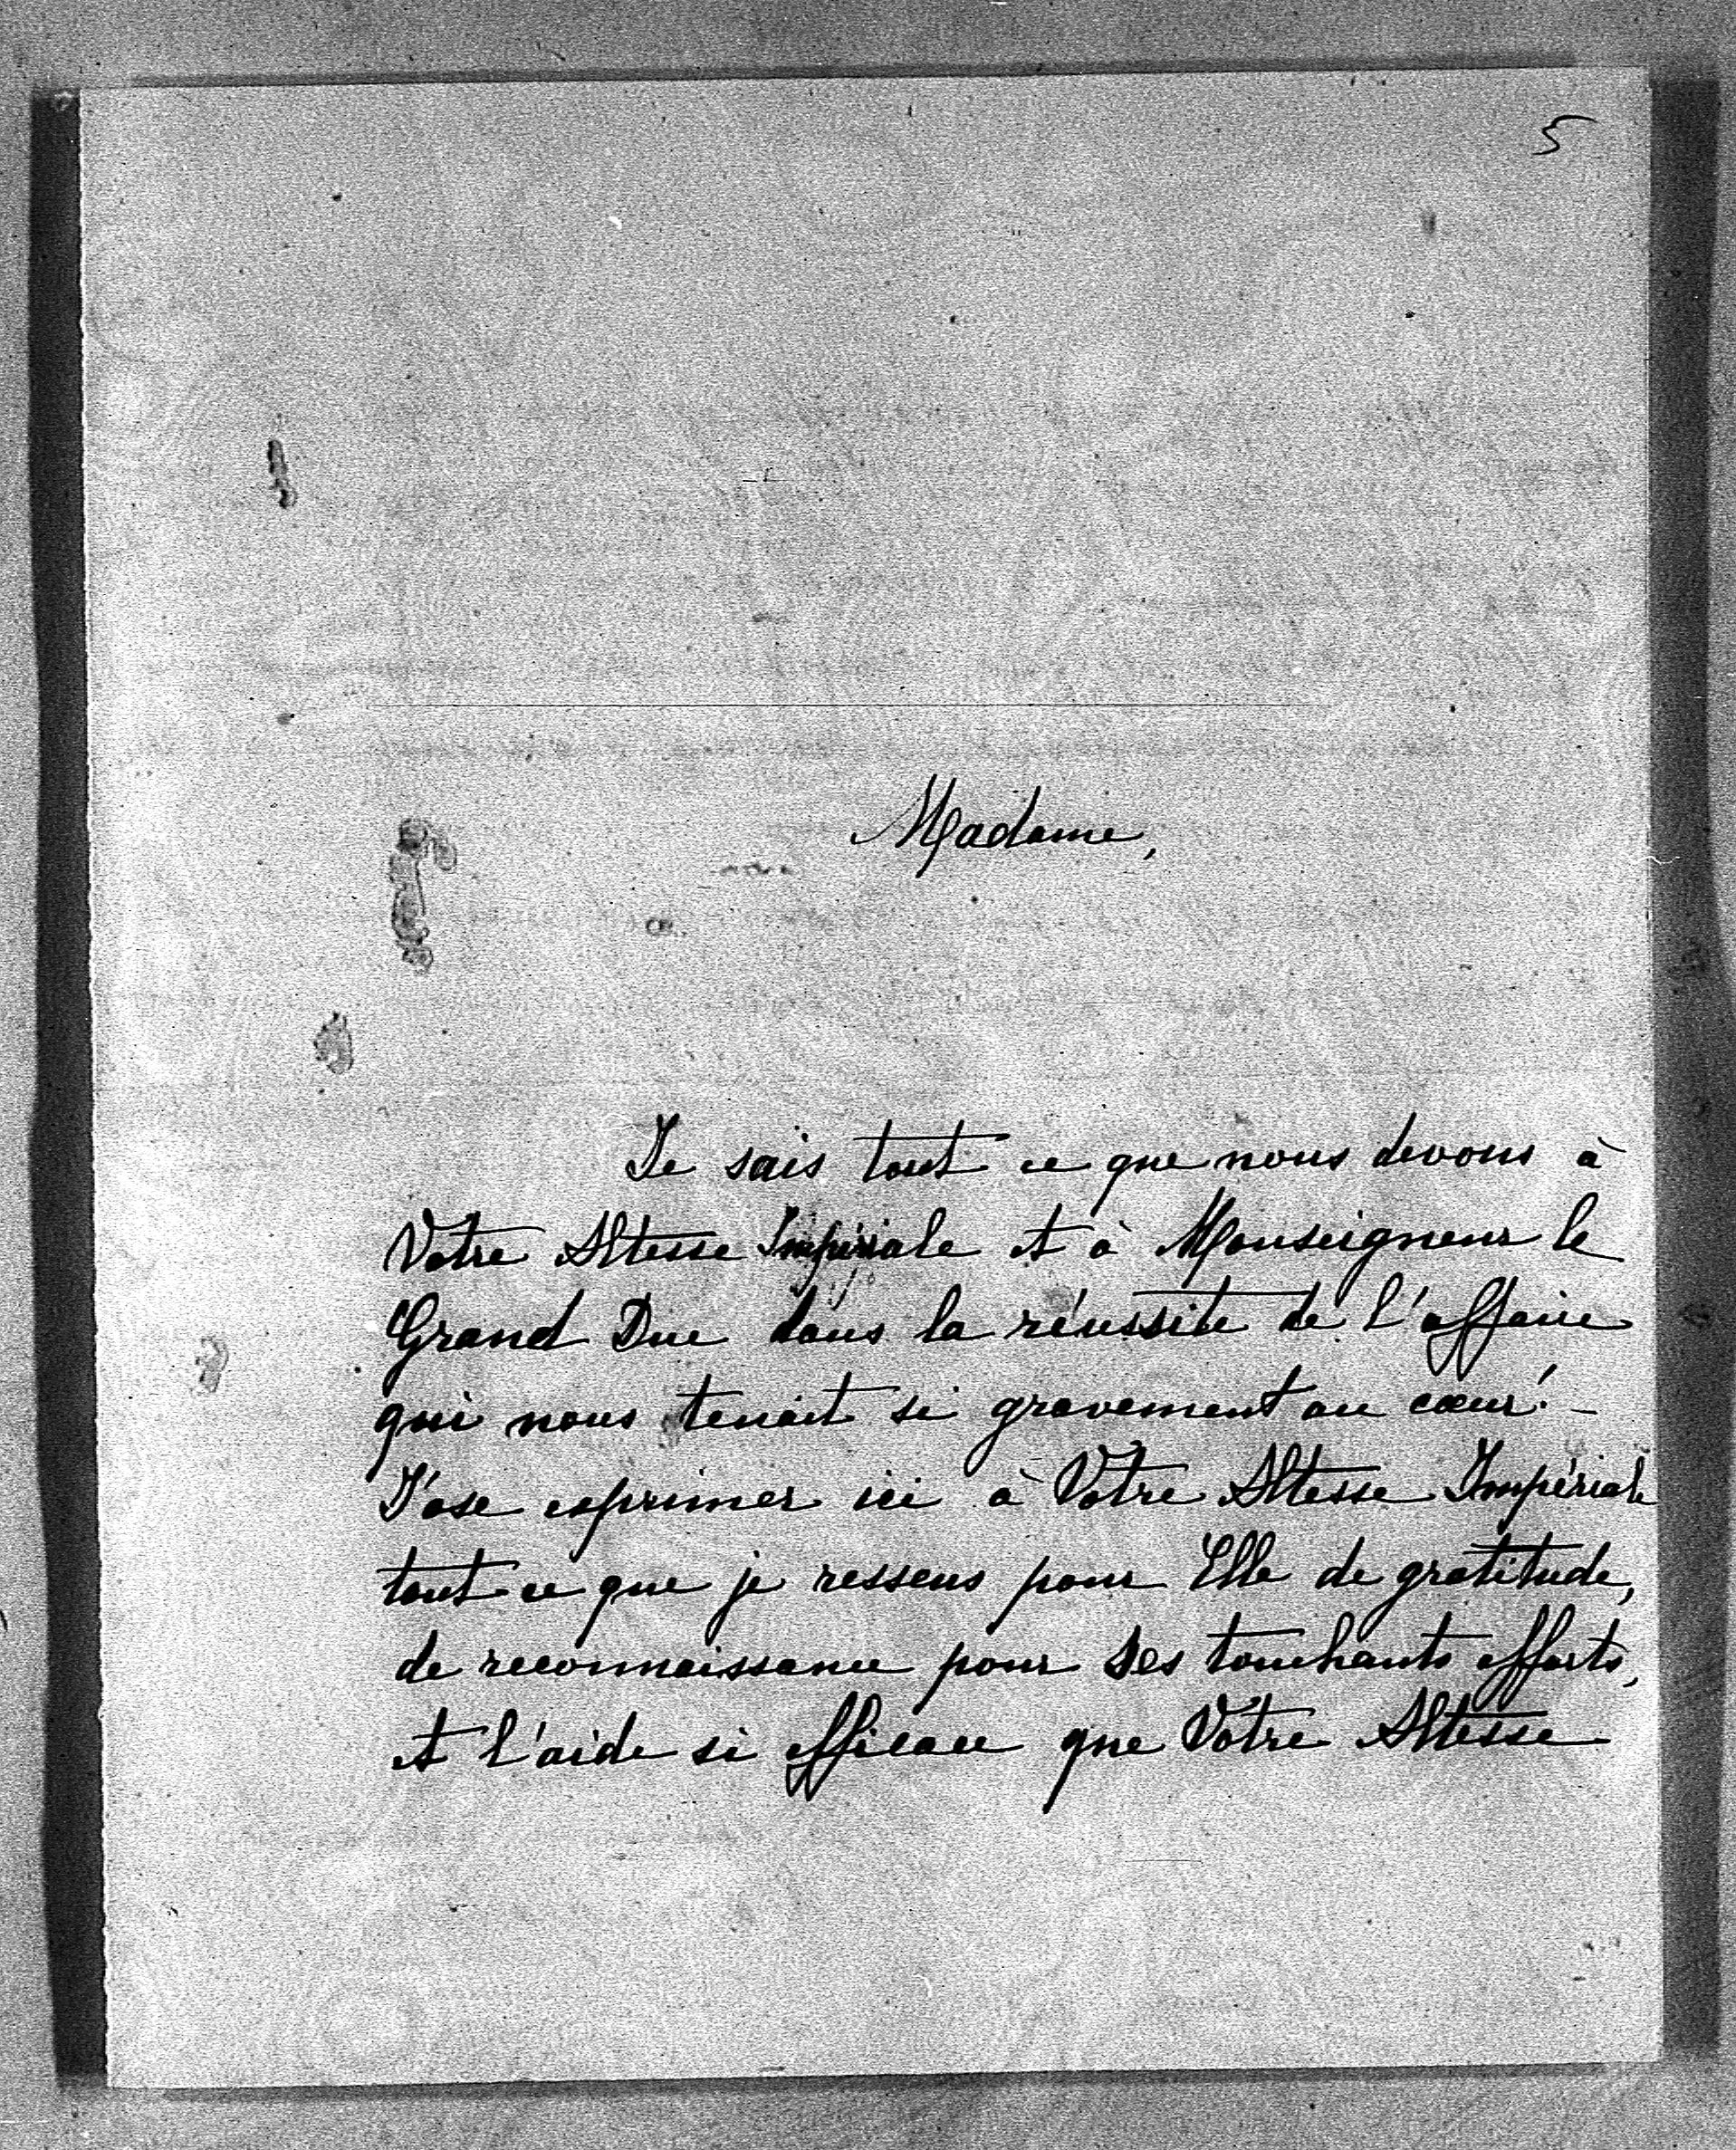 5
Madame,
Je sais tout ce que nous devons à
Votre Altesse Impériale et à Monseigneur le
Grand Duc dans la réussite de l'affaire
qui nous tenait si gravement au cœur! –
J'ose exprimer ici à Votre Altesse Impériale
tout ce que je ressens pour Elle de gratitude,
de reconnaissance pour Ses touchants efforts,
et l'aide si efficace que Votre Altesse